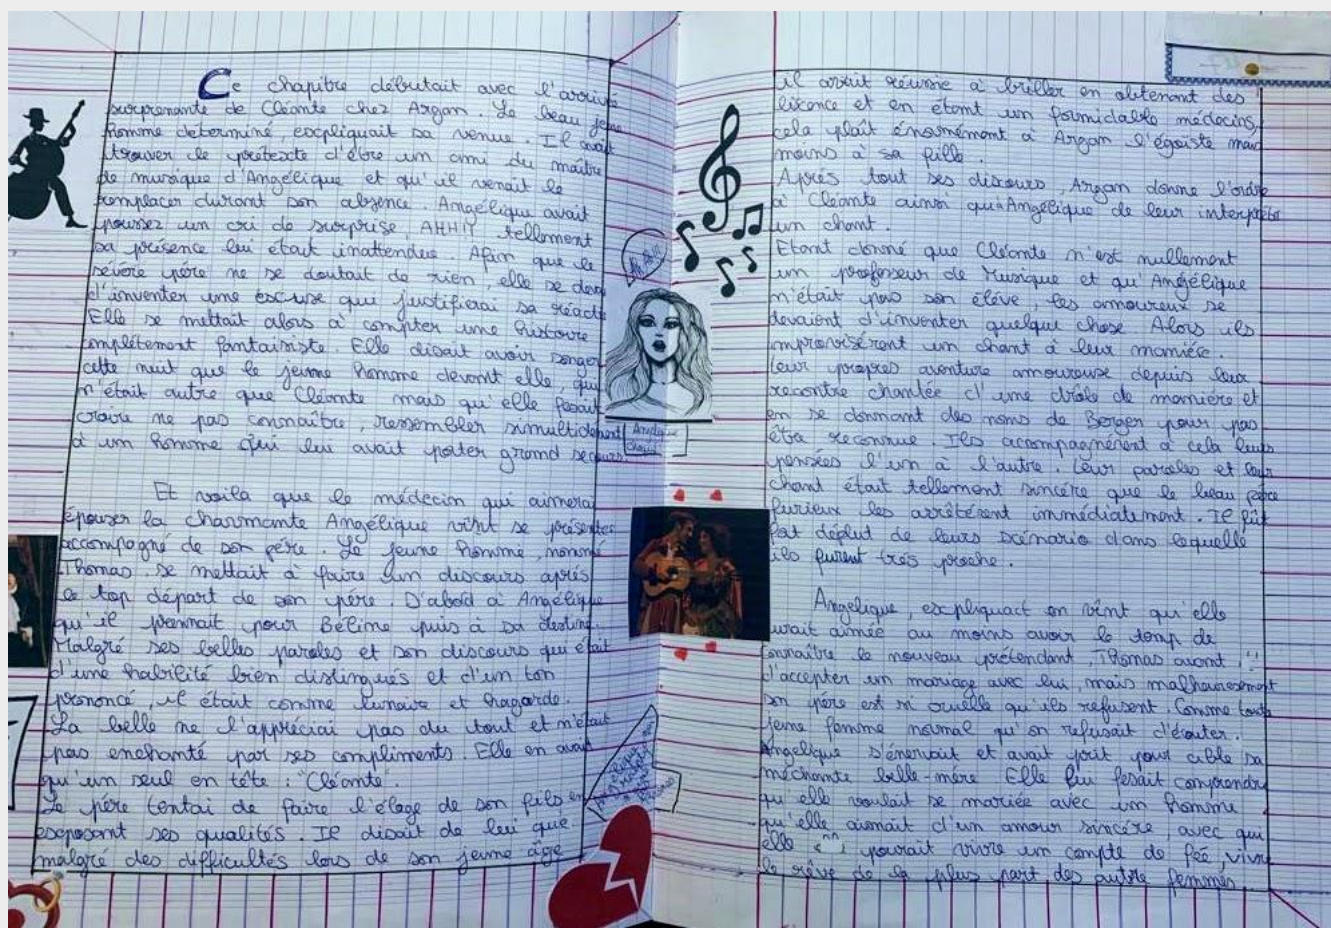 Ce chapitre débutait avec l'arrivée
surprenante de Cléante chez Argan. Le beau jeune
homme déterminé, expliquait sa venue. Il avait
trouver le prétexte d'être un ami du maître
de musique d'Angélique et qu'il venait le
remplacer durant son absence. Angélique avait
poussez un cri de surprise, AHH!! tellement
sa présence lui était inattendue. Afin que le
sévère père ne se doutait de rien, elle se
d'inventer une excuse qui justifierai sa
Elle se mettait alors à compter une histoire
complètement fantaisiste. Elle disait avoir songer
cette nuit que le jeune homme devant elle, qui
n'était autre que Cléante mais qu'elle fesait
croire ne pas connaître, ressembler
à un homme qui lui avait porter grand secours.
Et voila que le médecin qui aimerai
épouser la charmante Angélique vint se présenter
accompagné de son père. Le jeune homme, nommé
Thomas se mettait à faire un discours après
le top départ de son père. D'abord à Angélique
qu'il prennait pour Béline puis à sa
Malgré ses belles paroles et son discours qui était
d'une habilité bien distingués et d'un ton
prononcé, il était comme lunaire et hagarde.
La belle ne l'appréciai pas du tout et n'était
pas enchanté par ses compliments. Elle en avait
qu'un seul en tête : "Cléante".
Le père tentai de faire l'éloge de son fils en
exposant ses qualités. Il disait de lui que
malgré des difficultés lors de son jeune âge
il avait réussie à briller en obtenant des
licence et en étant un formidable médecins,
cela plaît énormément à Argan l'égoïste mais
moins à sa fille.
Après tout ses discours, Argan donne l'ordre
à Cléante ainsi qu'à Angélique de leur interpréter
un chant.
Etant donné que Cléante n'est nullement
un professeur de Musique et qu'Angélique
n'était pas son élève, les amoureux se
devaient d'inventer quelque chose Alors ils
improvisèrent un chant à leur manière.
leur propres aventure amoureuse depuis leur
recontre chantée d'une drôle de manière et
en se donnant des noms de Berger pour pas
être reconnue. Ils acompagnèrent à cela leurs
pensées l'un à l'autre. Leur paroles et leur
chant était tellement sincère que le beau père
furieux les arrêtèrent immédiatement. Il fût
fat déplut de leurs scénario dans lequelle
ils furent très proche.
Angelique, expliquact en vint qu'elle
aurait aimée au moins avoir le temp de
connaître le nouveau prétendant, Thomas avant
d'accepter un mariage avec lui, mais malheureusement
son père est si cruelle qu'ils refusent. Comme toute
jeune femme normal qu'on refusait d'écouter.
Angelique s'énervait et avait prit pour cible sa
méchante belle-mère Elle lui fesait comprendre
qu'elle voulait se mariée avec un homme
qu'elle aimait d'un amour sincère, avec qui
elle pourait vivre un compte de fée, vivre
le rêve de la plus part des autre femmes